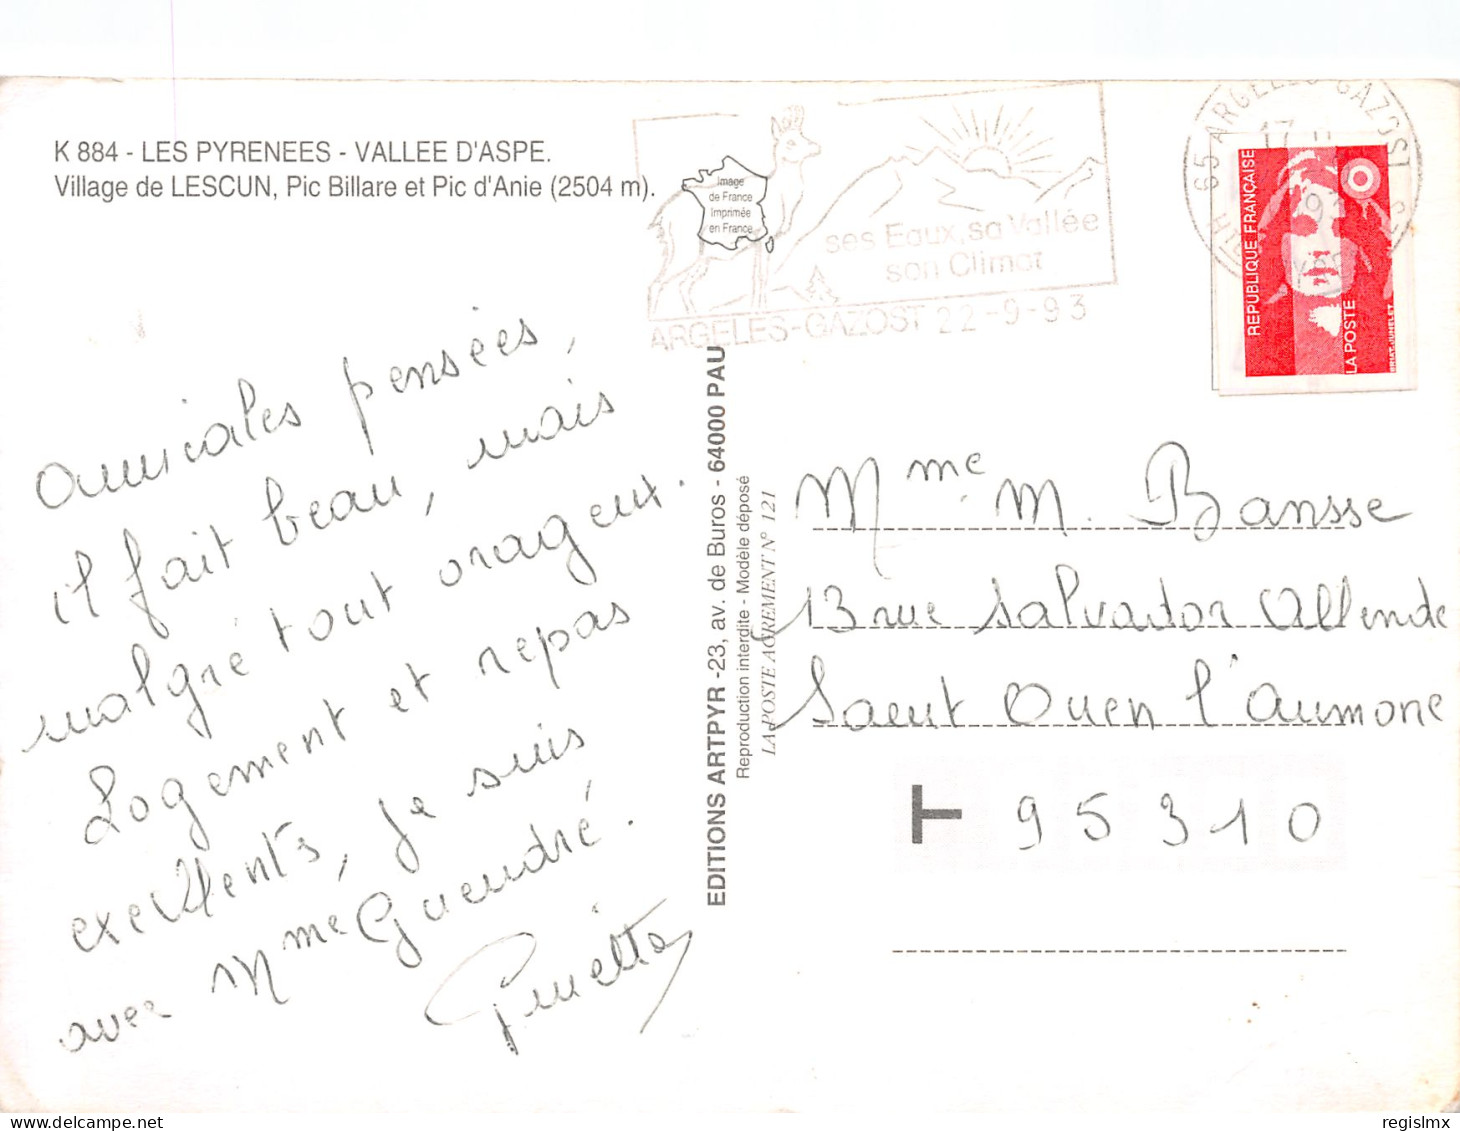 K 884 - LES PYRENEES - VALLEE D'ASPE.
Village de LESCUN, Pic Billare et Pic d'Anie (2504 m).
Image
de France
Imprimée
en France
ses Eaux, sa Vallée
son Climat
ARGELES-GAZOST 22-9-93
65 ARGELES GAZOST
REPUBLIQUE FRANÇAISE
LA POSTE
amicales pensées,
il fait beau, mais
malgré tout orageux.
Logement et repas
excellents, je suis
avec Mme Guendré.
EDITIONS ARTPYR -23, av. de Buros - 64000 PAU
Reproduction interdite - Modèle déposé
LA POSTE AGREMENT N° 121
Mme M. Bansse
13 rue Salvador Allende
Saint Ouen l'aumone
T 95310
regislmx